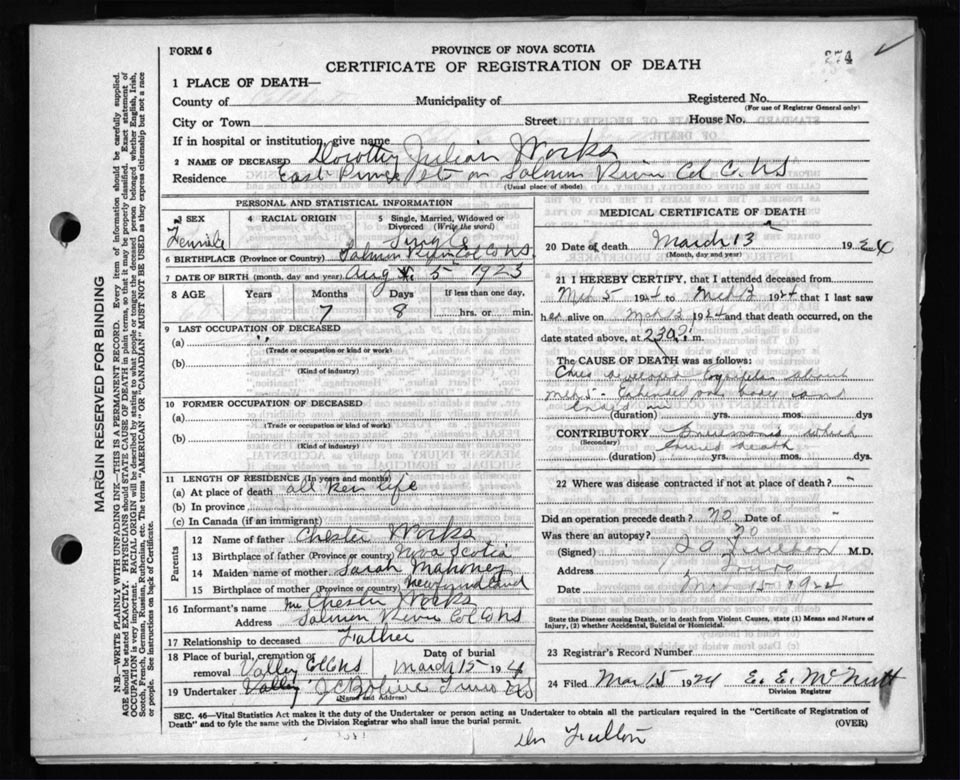 FORM 6
PROVINCE OF NOVA SCOTIA
CERTIFICATE OF REGISTRATION OF DEATH
274
1 PLACE OF DEATH—
County of Municipality of Registered No.
(For use of Registrar General only)
City or Town Street House No.
If in hospital or institution, give name
2 NAME OF DECEASED Dorothy Julian Works
Residence East Prince St on Salmon River Col Co NS
(Usual place of abode)
PERSONAL AND STATISTICAL INFORMATION
3 SEX 4 RACIAL ORIGIN 5 Single, Married, Widowed or Divorced (Write the word)
Female Single
6 BIRTHPLACE (Province or Country) Salmon River Col Co NS.
7 DATE OF BIRTH (month, day and year) Aug 5 1923
8 AGE Years Months Days If less than one day,
7 8 hrs. or min.
9 LAST OCCUPATION OF DECEASED
(a) "
(Trade or occupation or kind or work)
(b)
(Kind of industry)
10 FORMER OCCUPATION OF DECEASED
(a)
(Trade or occupation or kind of work)
(b)
(Kind of industry)
11 LENGTH OF RESIDENCE (In years and months)
(a) At place of death all her life
(b) In province
(c) In Canada (if an immigrant)
Parents
12 Name of father Chester Works
13 Birthplace of father (Province or country) Nova Scotia
14 Maiden name of mother Sarah Mahoney
15 Birthplace of mother (Province or country) Newfoundland
16 Informant's name Mr Chester Works
Address Salmon River Col Co NS
17 Relationship to deceased Father
18 Place of burial, cremation or removal Date of burial
Valley Col Co NS March 15 1924
19 Undertaker Valley Truro
(Name and Address)
MEDICAL CERTIFICATE OF DEATH
20 Date of death March 13 1924
(Month, day and year)
21 I HEREBY CERTIFY, that I attended deceased from
Mch 5 1924 to Mch 13 1924 that I last saw
her alive on Mch 13 1924 and that death occurred, on
date stated above, at 230 m.
The CAUSE OF DEATH was as follows:
developed Erysipelas about
Extended over body and
ended in
(duration) yrs. mos. dys
CONTRIBUTORY Pneumonia which
(Secondary) caused death
(duration) yrs. mos. dys.
22 Where was disease contracted if not at place of death?
Did an operation precede death? no Date of
Was there an autopsy? no
(Signed) Fulton M.D.
Address Truro
Date Mch 15 1924
State the Disease causing Death, or in death from Violent Causes, state (1) Means and Nature of
Injury, (2) whether Accidental, Suicidal or Homicidal.
23 Registrar's Record Number
24 Filed Mar 15 1924 E. E. McNutt
Division Registrar
SEC. 46—Vital Statistics Act makes it the duty of the Undertaker or person acting as Undertaker to obtain all the particulars required in the "Certificate of Registration of
Death" and to fyle the same with the Division Registrar who shall issue the burial permit. (OVER)
Dr Fulton
MARGIN RESERVED FOR BINDING
N.B.—WRITE PLAINLY WITH UNFADING INK—THIS IS A PERMANENT RECORD. Every item of information should be carefully supplied.
AGE should be stated EXACTLY. PHYSICIANS should STATE CAUSE OF DEATH in plain terms, so that it may be properly classified. Exact statement of
OCCUPATION is very important. RACIAL ORIGIN will be described by stating to what people or tongue the deceased person belonged whether English, Irish,
Scotch, French, German, Russian, Ruthenian, etc. The terms "AMERICAN" OR "CANADIAN" MUST NOT BE USED as they express citizenship but not a race
or people. See instructions on back of Certificate.